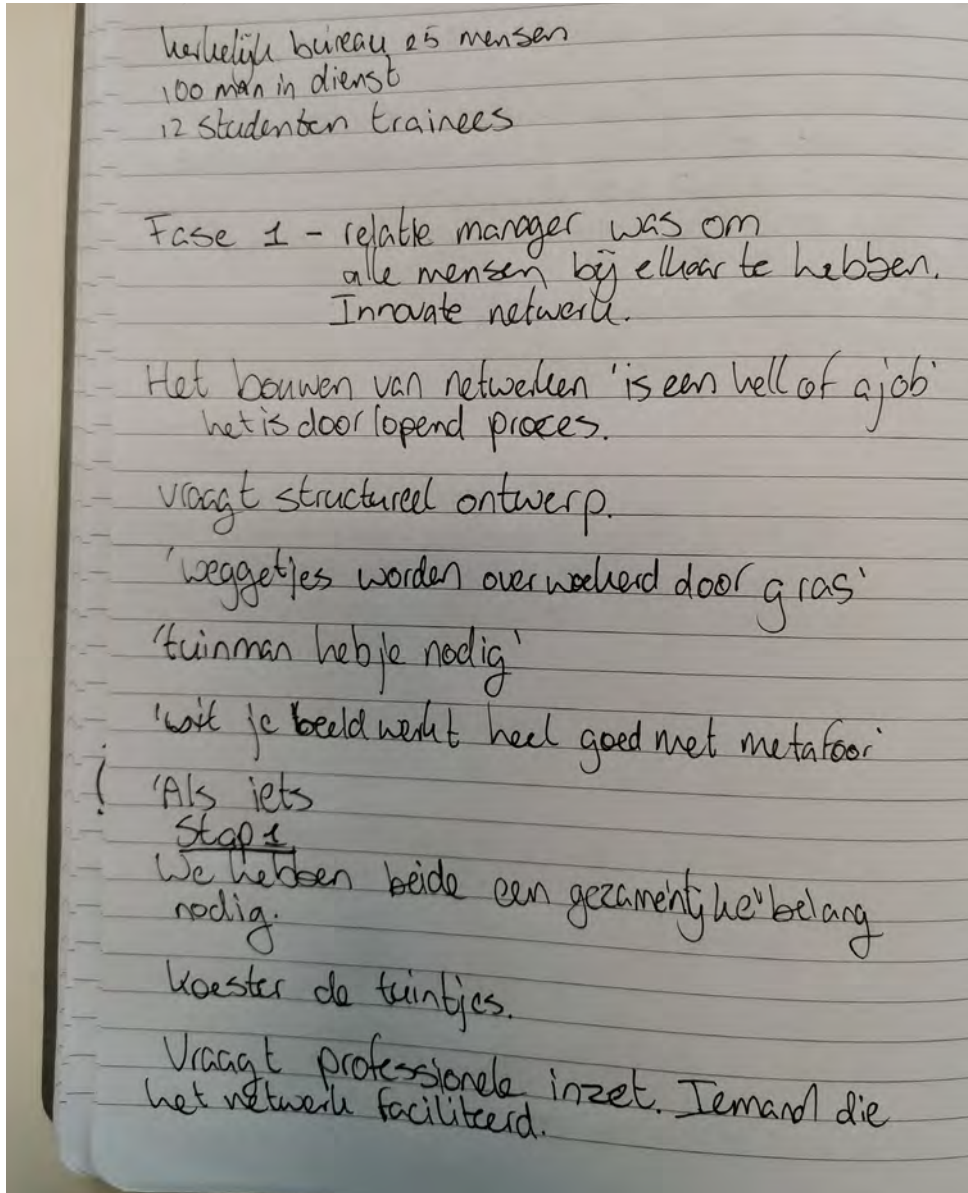 bureau 25 mensen
100 man in dienst
12 studenten trainees
Fase 1 - relatie manager was om
alle mensen bij elkaar te hebben.
Innovate netwerk.
Het bouwen van netwerken 'is een hell of a job'
het is doorlopend proces.
vraagt structureel ontwerp.
'weggetjes worden overwoekerd door gras'
'tuinman heb je nodig'
je beeld werkt heel goed met metafoor'
! 'Als iets
Stap 1
We hebben beide een belang
nodig.
Koester de tuintjes.
Vraagt professionele inzet. Iemand die
het netwerk faciliteerd.